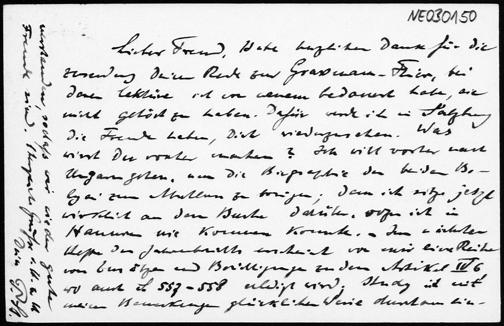 NE030150
Lieber Freund, Habe herzlichen Dank für die
Zusendung Deiner Rede zur Grassmann-Feier, bei
deren Lektüre ich von neuem bedauert habe, sie
nicht gehört zu haben. Dafür werde ich in Salzburg
die Freude haben, Dich wiederzusehen. Was
wirst Du vorher machen? Ich will vorher nach
Ungarn gehen, um die Biographie der beiden Bo-
lyai zum zu bringen; denn ich sitze jetzt
wirklich an dem Buche darüber, wozu ich in
Hannover nie kommen konnte. - Im nächsten
Hefte des Jahresberichts erscheint von mir eine Reihe
von Zusätzen und Berichtigungen zu dem Artikel
wo auch 557-558 erledigt wird; Study ist mit
meinen Bemerkungen glücklicher Weise durchaus ein-
verstanden, sodass wir wieder gute
Freunde sind. Herzliche Grüsse v. H. z. H.
Dein